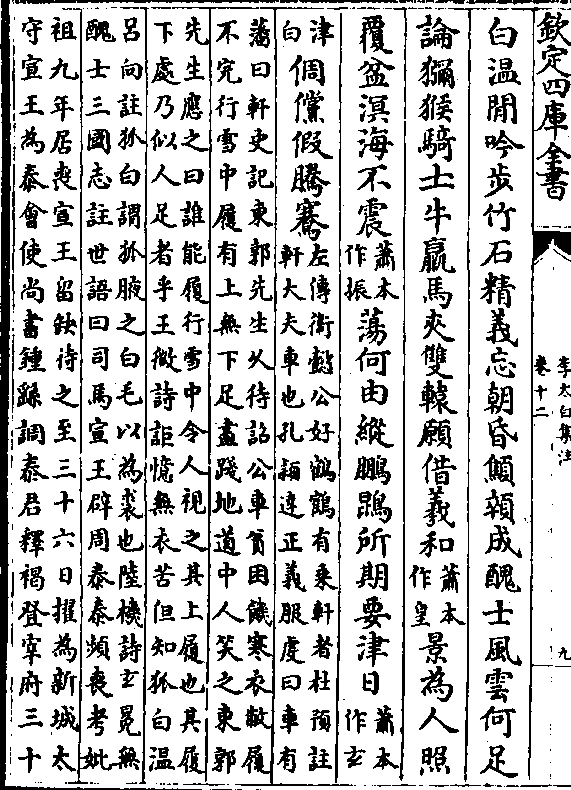 欽定四庫全書
李太白集注
卷十二
九
白温閒吟步竹石精義忘朝昏顦顇成醜士風雲何足
論獼猴騎土牛羸馬夾雙轅願借羲和蕭本作皇景為人照
覆盆溟海不震蕭本作振蕩何由縱鵬鵾所期要津日蕭本作玄
津白倜儻假騰騫左傳衛懿公好鶴鶴有乗軒者杜預註
軒大夫車也孔頴達正義服虔曰車有
藩曰軒史記東郭先生乆待詔公車貧困饑寒衣敝履
不完行雪中履有上無下足盡踐地道中人笑之東郭
先生應之曰誰能履行雪中令人視之其上履也其履
下處乃似人足者乎王微詩詎憶無衣苦但知狐白温
呂向註狐白謂狐腋之白毛以為裘也陸機詩玄冕無
醜士三國志註世語曰司馬宣王辟周泰泰頻喪考妣
祖九年居喪宣王留缺待之至三十六日擢為新城太
守宣王為泰會使尚書鍾繇調泰君釋褐登宰府三十